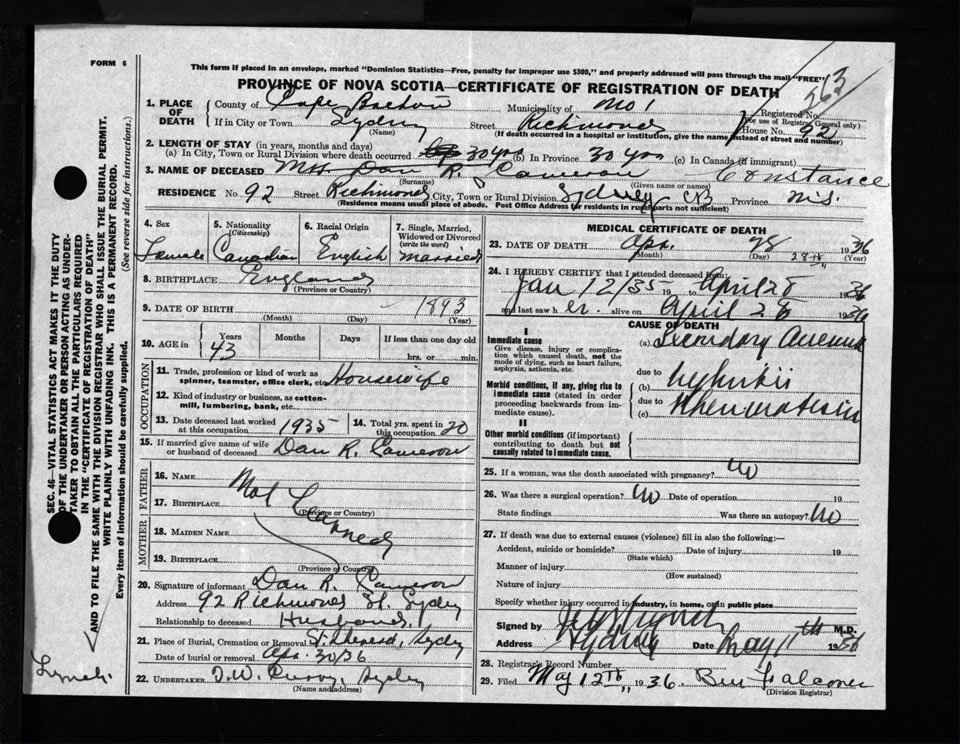 FORM 6
This form if placed in an envelope, marked "Dominion Statistics—Free, penalty for improper use $300," and properly addressed will pass through the mail "FREE"
PROVINCE OF NOVA SCOTIA—CERTIFICATE OF REGISTRATION OF DEATH
1. PLACE OF DEATH { County of Cape Breton Municipality of No 1 Registered No.
(For use of Registrar General only)
If in City or Town Sydney Street Richmond House No. 92
(Name) (If death occurred in a hospital or institution, give the name instead of street and number)
2. LENGTH OF STAY (in years, months and days)
(a) In City, Town or Rural Division where death occurred 30 yrs (b) In Province 30 yrs (c) In Canada (if immigrant)
3. NAME OF DECEASED Mrs Dan R. Cameron Constance
(Surname) (Given name or names)
RESIDENCE No. 92 Street Richmond City, Town or Rural Division Sydney CB Province N.S.
(Residence means usual place of abode. Post Office Address for residents in rural parts not sufficient)
4. Sex Female
5. Nationality (Citizenship) Canadian
6. Racial Origin English
7. Single, Married, Widowed or Divorced (write the word) Married
8. BIRTHPLACE England
(Province or Country)
9. DATE OF BIRTH 1893
(Month) (Day) (Year)
10. AGE in Years 43 Months Days If less than one day old
hrs. or min.
OCCUPATION
11. Trade, profession or kind of work as spinner, teamster, office clerk, etc. Housewife
12. Kind of industry or business, as cotton-mill, lumbering, bank, etc.
13. Date deceased last worked at this occupation 1935
14. Total yrs. spent in this occupation 20
15. If married give name of wife or husband of deceased Dan R. Cameron
FATHER
16. NAME Not Learned
17. BIRTHPLACE
(Province or Country)
MOTHER
18. MAIDEN NAME
19. BIRTHPLACE
(Province or Country)
20. Signature of informant Dan R. Cameron
Address 92 Richmond St. Sydney
Relationship to deceased Husband
21. Place of Burial, Cremation or Removal St. Theresa, Sydney
Date of burial or removal Apr. 30/36
22. UNDERTAKER T.W. Curry, Sydney
(Name and address)
MEDICAL CERTIFICATE OF DEATH
23. DATE OF DEATH Apr. 28 28th 1936
(Month) (Day) (Year)
24. I HEREBY CERTIFY that I attended deceased from:
Jan 12/35 19 to April 28 1936
and last saw her alive on April 28 1936
CAUSE OF DEATH
I
Immediate cause
Give disease, injury or complication which caused death, not the mode of dying, such as heart failure, asphyxia, asthenia, etc.
(a) Secondary
due to
Morbid conditions, if any, giving rise to immediate cause (stated in order proceeding backwards from immediate cause).
(b)
due to
(c) Rheumatism
II
Other morbid conditions (if important) contributing to death but not causally related to immediate cause.
25. If a woman, was the death associated with pregnancy? No
26. Was there a surgical operation? No Date of operation 19
State findings Was there an autopsy? No
27. If death was due to external causes (violence) fill in also the following:—
Accident, suicide or homicide? Date of injury 19
(State which)
Manner of injury
(How sustained)
Nature of injury
Specify whether injury occurred in industry, in home, or in public place
Signed by Lynch M.D.
Address Sydney Date May 11th 1936
28. Registrar's Record Number
29. Filed May 12th 1936 Falconer
(Division Registrar)
SEC. 46—VITAL STATISTICS ACT MAKES IT THE DUTY
OF THE UNDERTAKER OR PERSON ACTING AS UNDER-
TAKER TO OBTAIN ALL THE PARTICULARS REQUIRED
IN THE "CERTIFICATE OF REGISTRATION OF DEATH"
AND TO FILE THE SAME WITH THE DIVISION REGISTRAR WHO SHALL ISSUE THE BURIAL PERMIT.
WRITE PLAINLY WITH UNFADING INK. THIS IS A PERMANENT RECORD.
Every item of information should be carefully supplied. (See reverse side for instructions.)
Lynch.